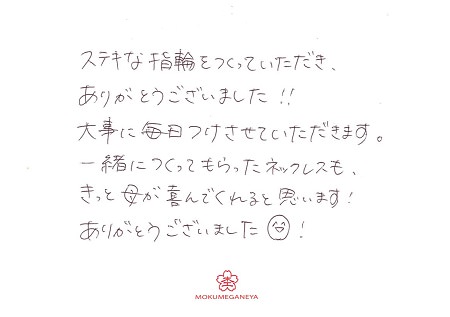 ステキな指輪をつくっていただき、
ありがとうございました!!
大事に毎日つけさせていただきます。
一緒につくってもらったネックレスも、
きっと母が喜んでくれると思います!
ありがとうございました!
MOKUMEGANEYA